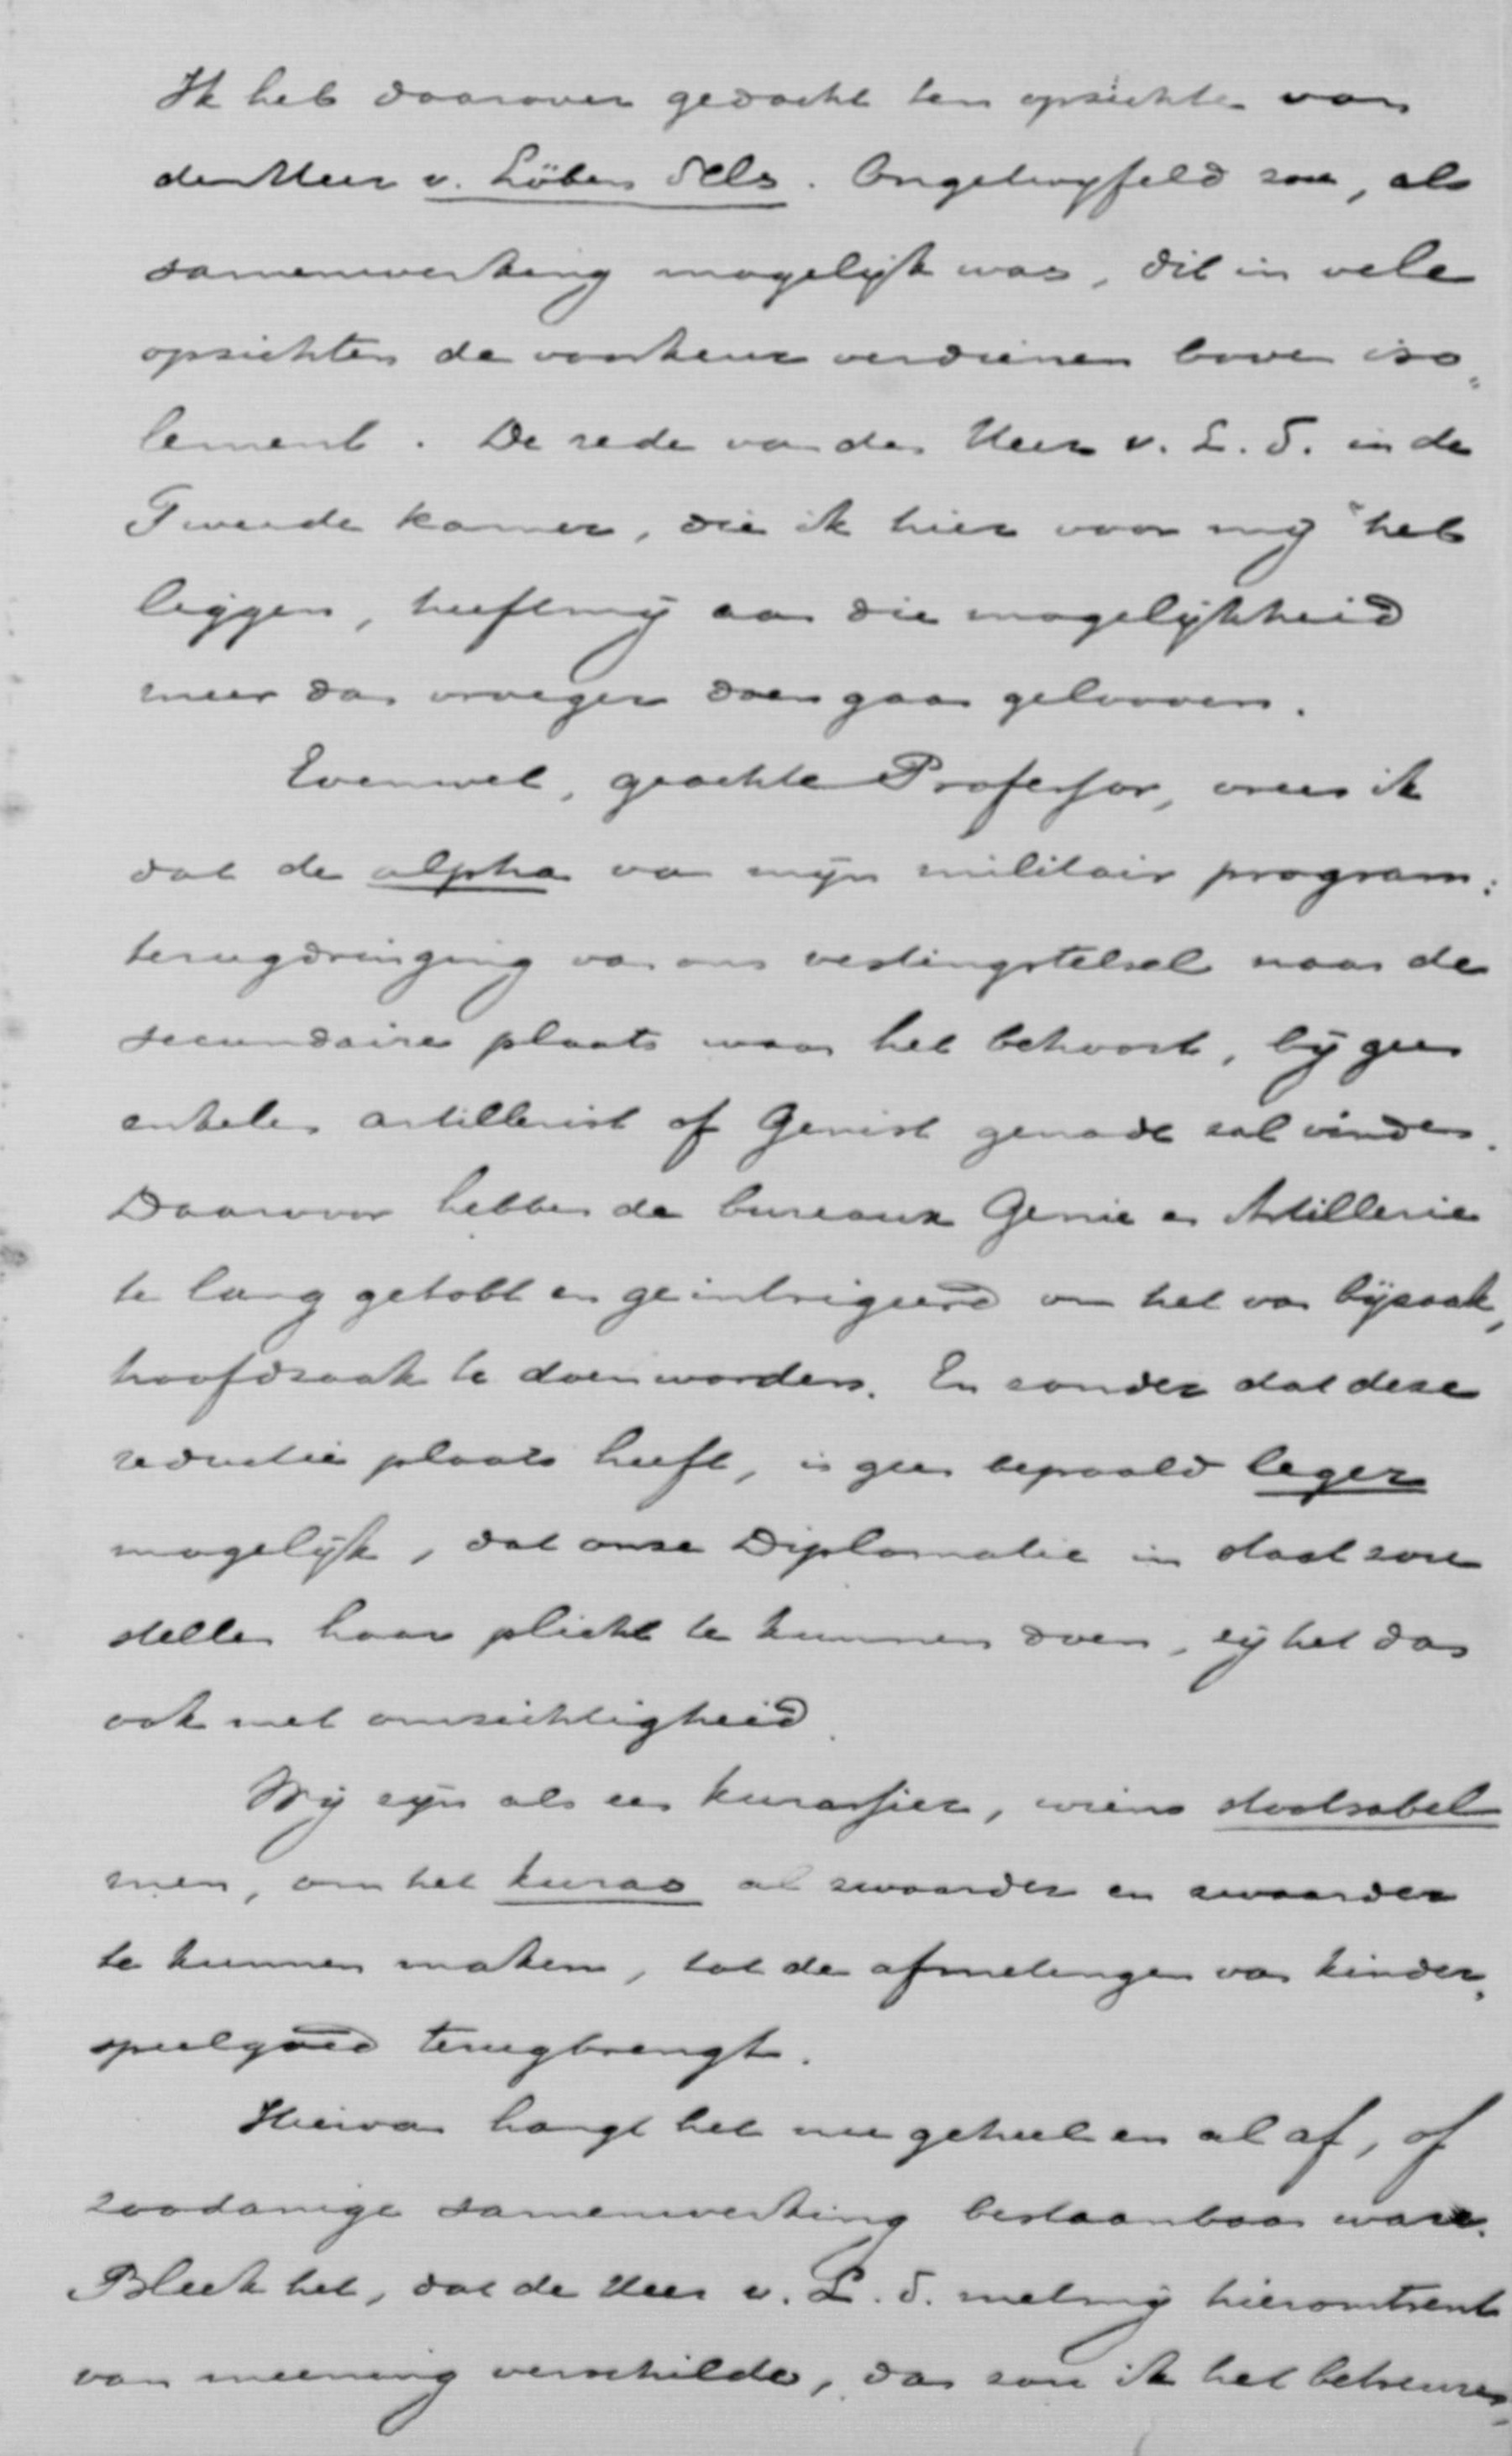 Ik heb daarover gedacht ten opzichte van
den Heer v. Löben Sels. Ongetwyfeld zou, als
samenwerking mogelijk was, dit in vele
opzichten de voorkeur verdienen boven iso=
lement. De rede van den Heer v. L. S. in de
Tweede Kamer, die ik hier voor mij heb
liggen, heeft mij aan die mogelijkheid
meer dan vroeger doen gaan gelooven.
Evenwel, geachte Professor, vrees ik
dat de alpha van mijn militair program:
terugdringing van ons vestingstelsel naar de
secundaire plaats waar het behoort, bij geen
enkelen artillerist of Genist genade zal vinden.
Daarvoor hebben de bureaux Genie en Artillerie
te lang getobt en geintrigeerd om het van bijzaak,
hoofdzaak te doen worden. En zonder dat deze
reductie plaats heeft, is geen bepaald leger
mogelijk, dat onze Diplomatie in staat zou
stellen haar plicht te kunnen doen, zij het dan
ook met omzichtigheid.
Wij zijn als een kurassier, wiens slootsabel
men, om het kuras al zwaarder en zwaarder
te kunnen maken, tot de afmetingen van kinder=
speelgoed terugbrengt.
Hiervan hangt het nu geheel en al af, of
zoodanige samenwerking bestaanbaar ware.
Bleek het, dat de Heer v. L. S. met mij hieromtrent
van meening verschilde, dan zou ik het betreuren,